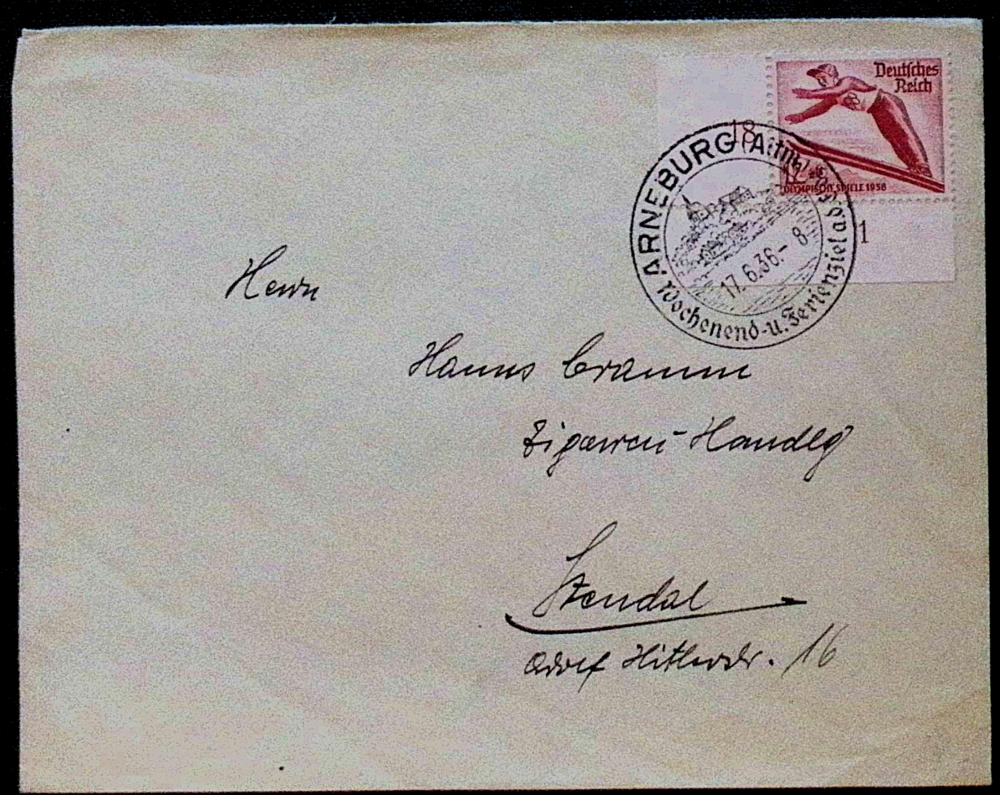 Deutsches
Reich
12
OLYMPISCHE SPIELE 1936
18
1
ARNEBURG (Altm)
17.6.36.- 8
Wochenend- u. Ferienziel
Herrn
Hanns Cramm
Zigarren-Handlg
Stendal
Adolf Hitlerstr. 16